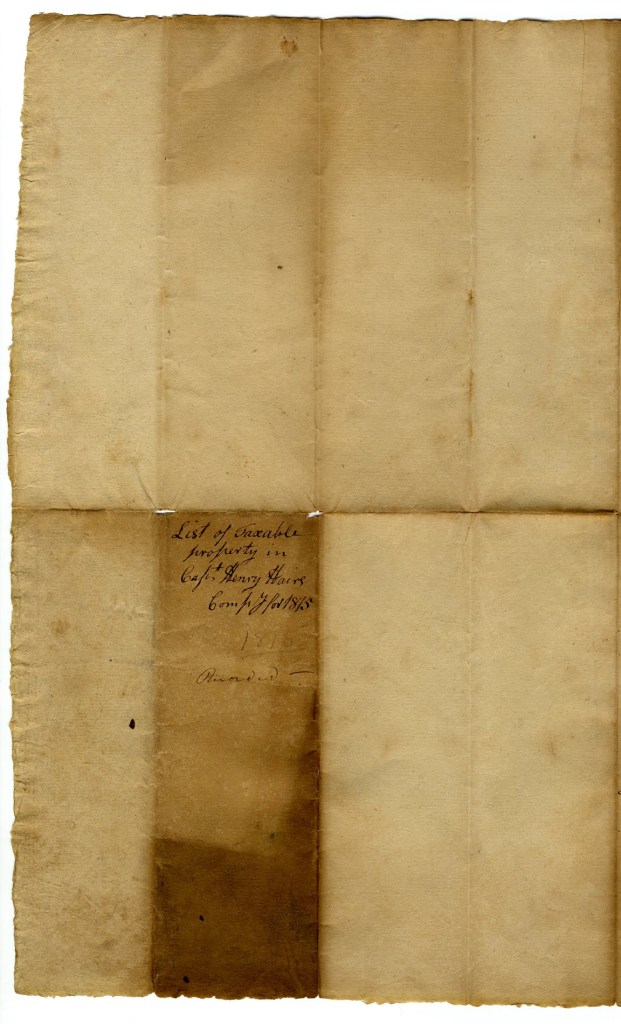 List of Taxable
property in
Capt Henry Hairs
Compy for 1815
1815
Recorded —